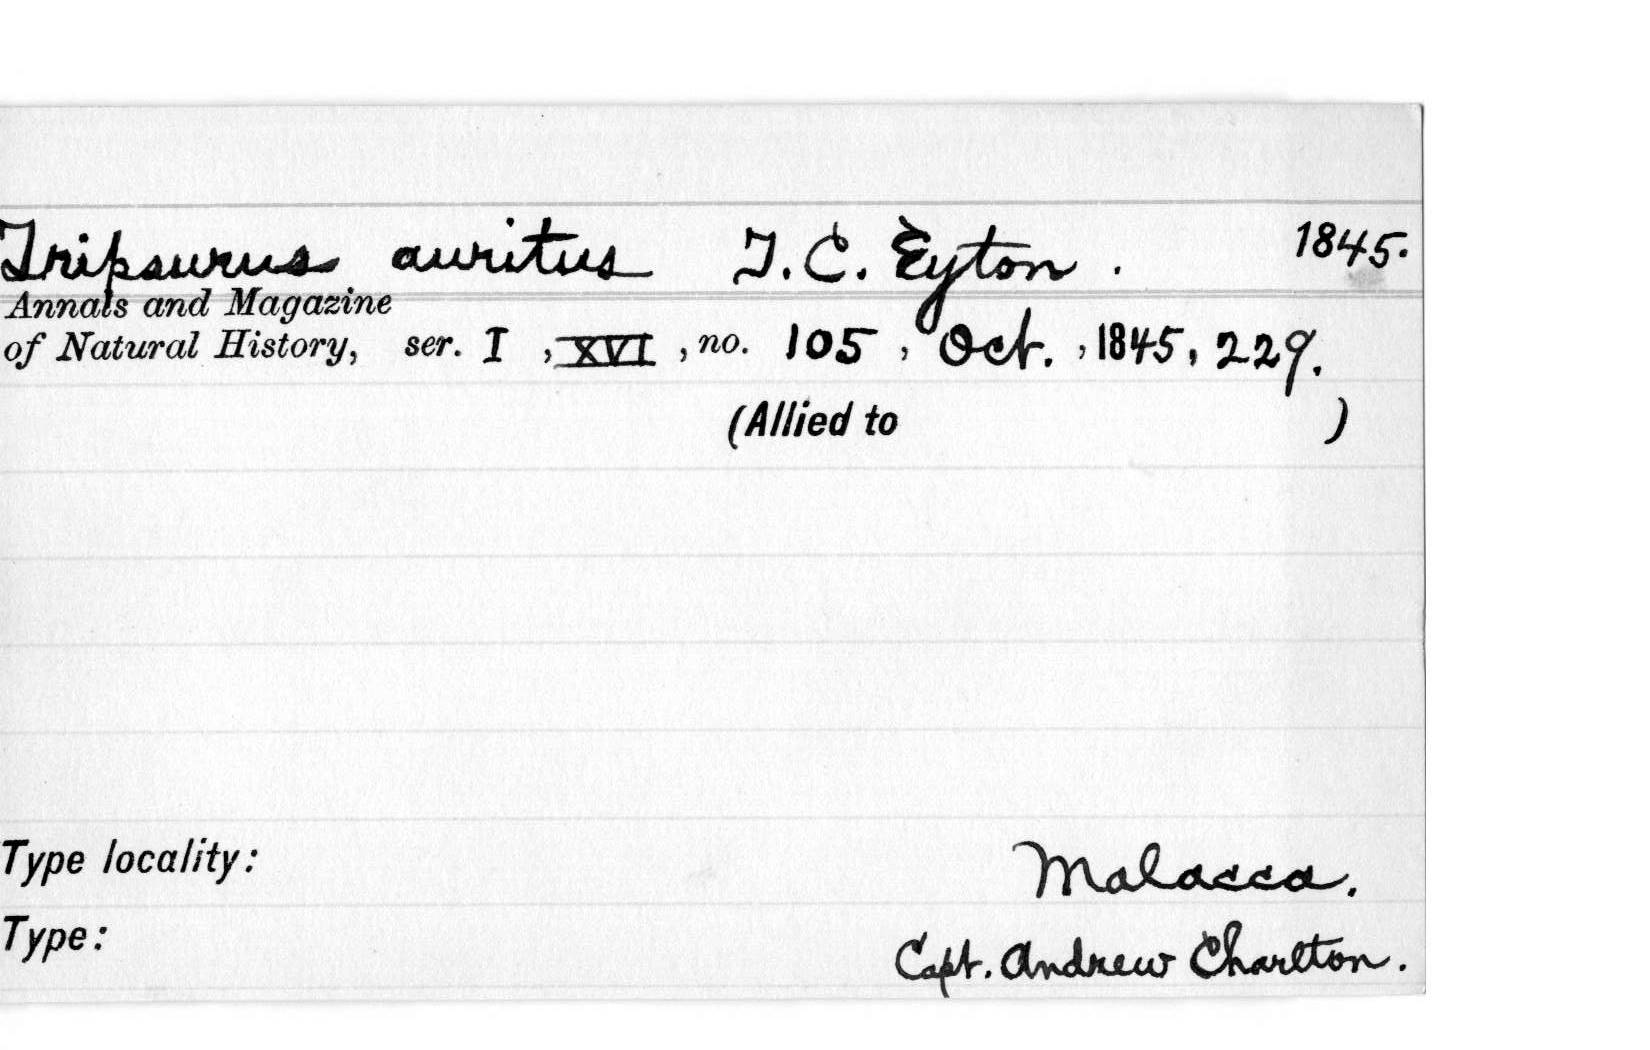 Tripsurus auritus T.C. Eyton. 1845.
Annals and Magazine
of Natural History, ser. I, XVI, no. 105, Oct., 1845, 229.
(Allied to )
Type locality: Malacca.
Type: Capt. Andrew Charlton.